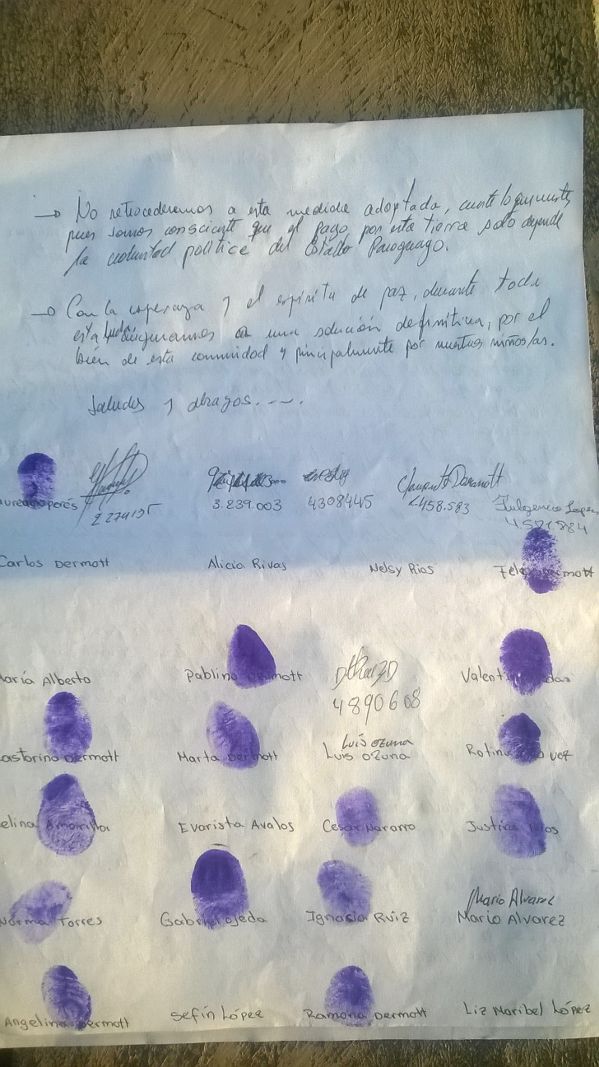 → No retrocederemos a esta medida adoptada, cueste lo que nos cueste,
pues somos consciente que el pago por esta tierra solo depende
la voluntad politica del Estado Paraguayo.
→ Con la esperaza y el espiritu de paz, durante toda
esta una solución definitiva, por el
bien de esta comunidad y principalmente por nuestros niños/as.
Saludos y abrazos....
2274195 3.239.003 4308445 Clemente Dermott
458.583 Fulgencio Lopez
4581884
Carlos Dermott Alicia Rivas Nelsy Rios
María Alberto Pablino Dermott
4890608
Luis Ozuna
astorino Dermott Marta Dermott Luis Ozuna
elina Amarilla Evarista Avalos Cesar Navarro Justina
Mario Alvarez
Norma Torres Gabriel Ojeda Ignacia Ruiz Mario Alvarez
Angelina Dermott Sefín López Ramona Dermott Liz Maribel López